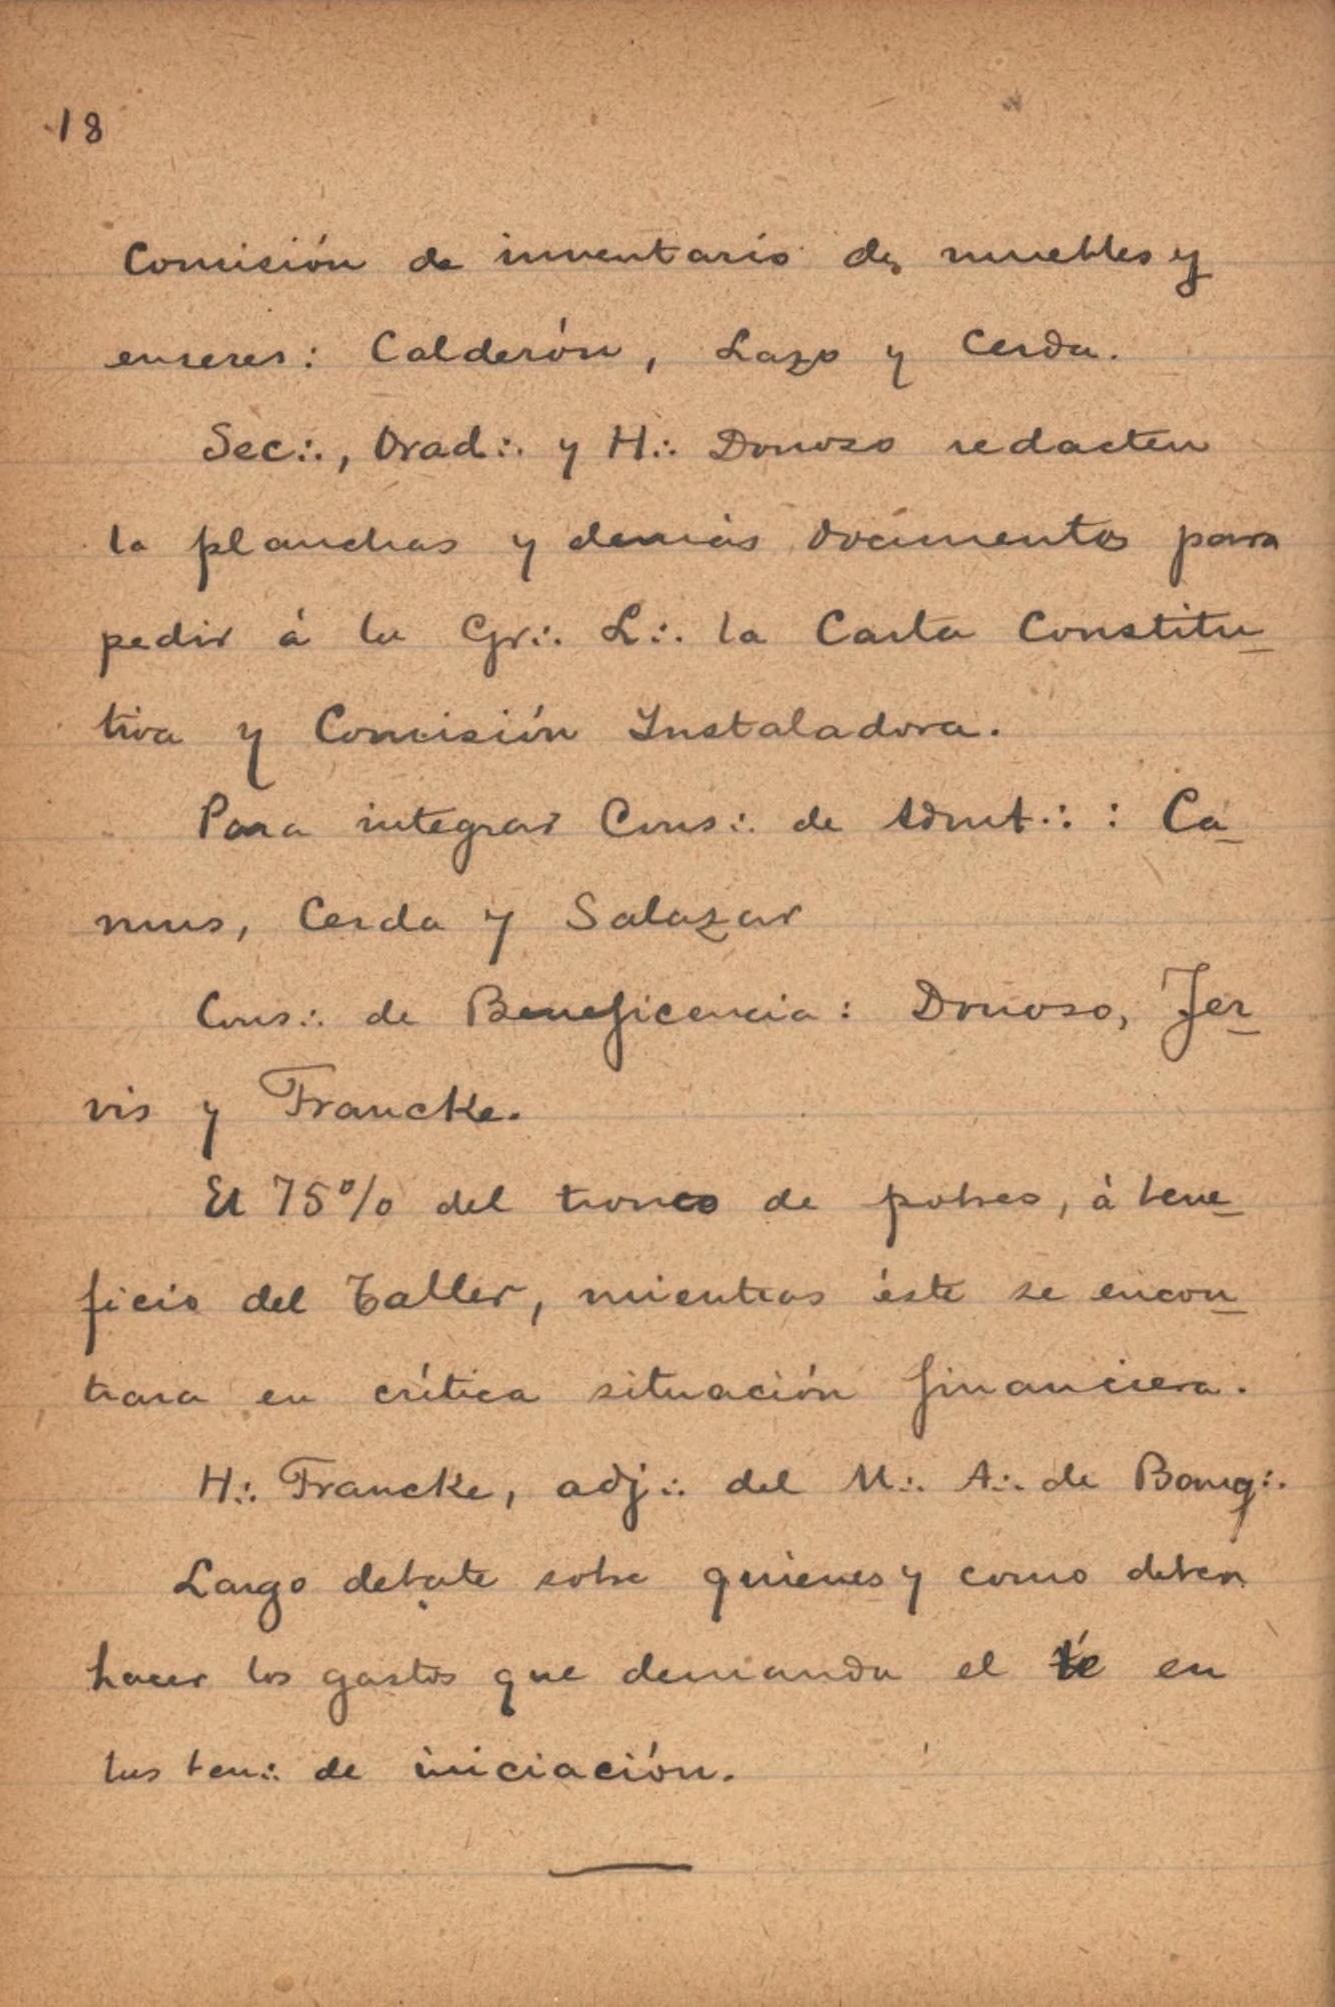 18
Comisión de inventario de muebles y
enseres: Calderón, Lazo y Cerda.
Sec∴, Orad∴ y H∴ Donoso redacten
la planchas y demás documentos para
pedir á la Gr∴ L∴ la Carta Constitu-
tiva y Comisión Instaladora.
Para integrar Cons∴ de Admt∴: Ca-
mus, Cerda y Salazar
Cons∴ de Beneficencia: Donoso, Jer-
vis y Francke.
El 75% del tronco de pobres, á bene-
ficio del Taller, mientras éste se encon-
trara en crítica situación financiera.
H∴ Francke, adj∴ del M∴ A∴ de Banq∴
Largo debate sobre quienes y como deben
hacer los gastos que demanda el té en
las ten∴ de iniciación.